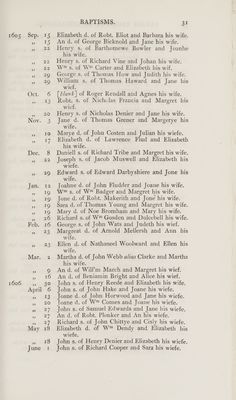 BAPTISMS. 31
1605 Sep. 15 Elizabeth d. of Robt. Eliot and Barbara his wife.
„ 15 An d. of George Bicknold and Jane his wief.
„ 22 Henry s. of Barthomewe Bowler and Joanhe
his wiefe.
„ 22 Henry s. of Richard Vine and Johan his wiefe.
„ 22 Wm s. of Wm Carter and Elizabeth his wief.
„ 29 George s. of Thomas How and Judith his wiefe.
„ 29 William s. of Thomas Haward and Jane his
wief.
Oct. 6 [blank] of Roger Kendall and Agnes his wiefe.
„ 13 Robt. s. of Nicholas Francis and Margret his
wief.
„ 20 Henry s. of Nicholas Denier and Jane his wief.
Nov. 3 Jane d. of Thomas Grener and Margetye his
wiefe.
„ 10 Marye d. of John Costen and Julian his wiefe.
„ 17 Elizabeth d. of Lawrence Flud and Elizabeth
his wiefe.
Dec. 8 Daniell s. of Richard Tribe and Margret his wiefe.
„ 22 Joseph s. of Jacob Muswell and Elizabeth his
wiefe.
„ 29 Edward s. of Edward Darbyshiere and Jone his
wiefe.
Jan. 12 Joahne d. of John Fludder and Joane his wiefe.
„ 19 Wm s. of Wm Badger and Margret his wiefe.
„ 19 Jone d. of Robt. Makerith and Jone his wiefe.
„ 19 Sara d. of Thomas Young and Margret his wiefe.
„ 19 Mary d. of Noe Bromham and Mary his wiefe.
„ 26 Richard s. of Wm Gosden and Dulcebell his wiefe.
Feb. 16 George s. of John Wats and Judeth his wief.
„ 23 Margreat d. of Arnold Mellersh and Ann his
wiefe.
„ 23 Ellen d. of Nathaneel Woolward and Ellen his
wiefe.
Mar. 2 Martha d. of John Webb alias Clarke and Martha
his wiefe.
„ 9 An d. of Will'm March and Margret his wief.
„ 16 An d. of Benjamin Bright and Alice his wief.
1606 „ 30 John s. of Henry Reede and Elizabeth his wiefe.
April 6 John s. of John Hake and Joane his wiefe.
„ 13 Joane d. of John Horwood and Jane his wiefe.
„ 20 Joane d. of Wm Comes and Joane his wiefe.
„ 27 John s. of Samuel Edwards and Jane his wiefe.
„ 27 An d. of Robt. Plonker and An his wiefe.
„ 27 Richard s. of John Chittye and Cisly his wiefe.
May 18 Elizabeth d. of Wm Dendy and Elizabeth his
wiefe.
„ 18 John s. of Henry Denier and Elizabeth his wiefe.
June 1 John s. of Richard Cooper and Sara his wiefe.